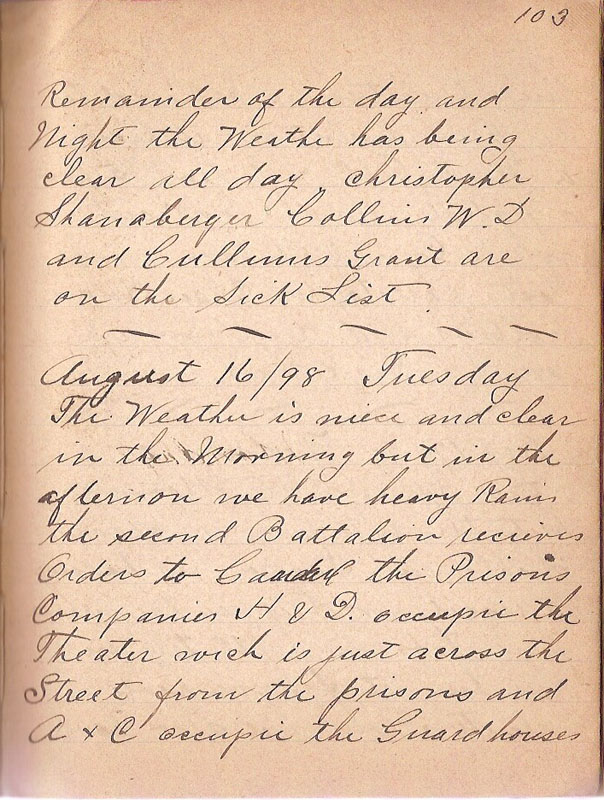 103
Remainder of the day and
Night the Weathe has being
clear all day, christopher
Shanaberger Collins W.D
and Cullums Grant are
on the Sick List.
August 16/98 Tuesday
The Weather is niece and clear
in the Morning but in the
afternoon we have heavy Rain
the second Battalion recieves
Orders to the Prisons
Companies H & D. occupie the
Theater wich is just across the
Street from the prisons and
A & C occupie the Guard houses